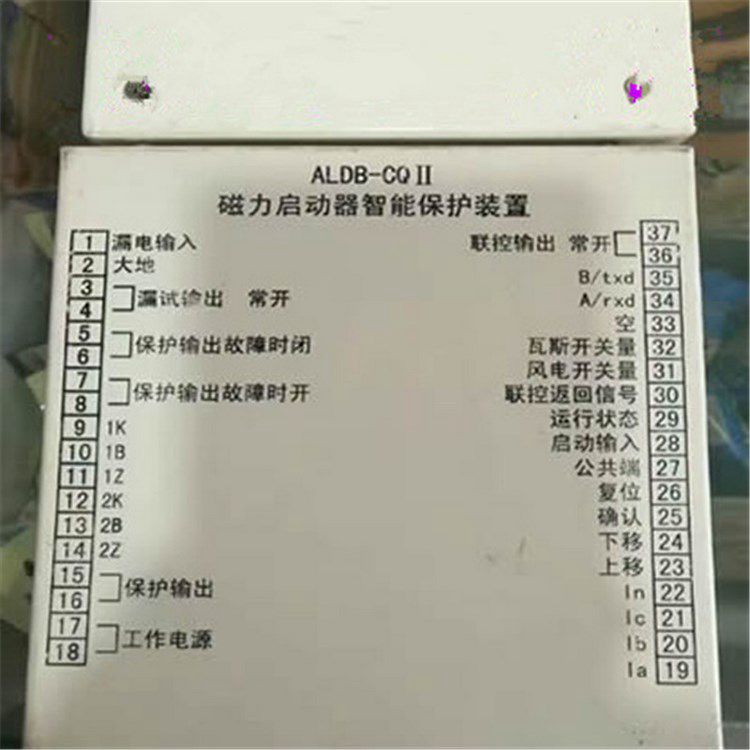 ALDB-CQⅡ
磁力启动器智能保护装置
1 漏电输入
2 大地
3
4
漏试输出 常开
5
6
保护输出故障时闭
7
8
保护输出故障时开
9 1K
10 1B
11 1Z
12 2K
13 2B
14 2Z
15
16
保护输出
17
18
工作电源
37
36
联控输出 常开
B/txd 35
A/rxd 34
空 33
瓦斯开关量 32
风电开关量 31
联控返回信号 30
运行状态 29
启动输入 28
公共端 27
复位 26
确认 25
下移 24
上移 23
In 22
Ic 21
Ib 20
Ia 19